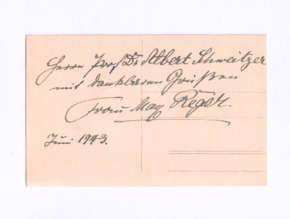 Herrn Prof Dr Albert Schweitzer
mit dankbaren Grüßen
Frau Max Reger.
Juni 1943.